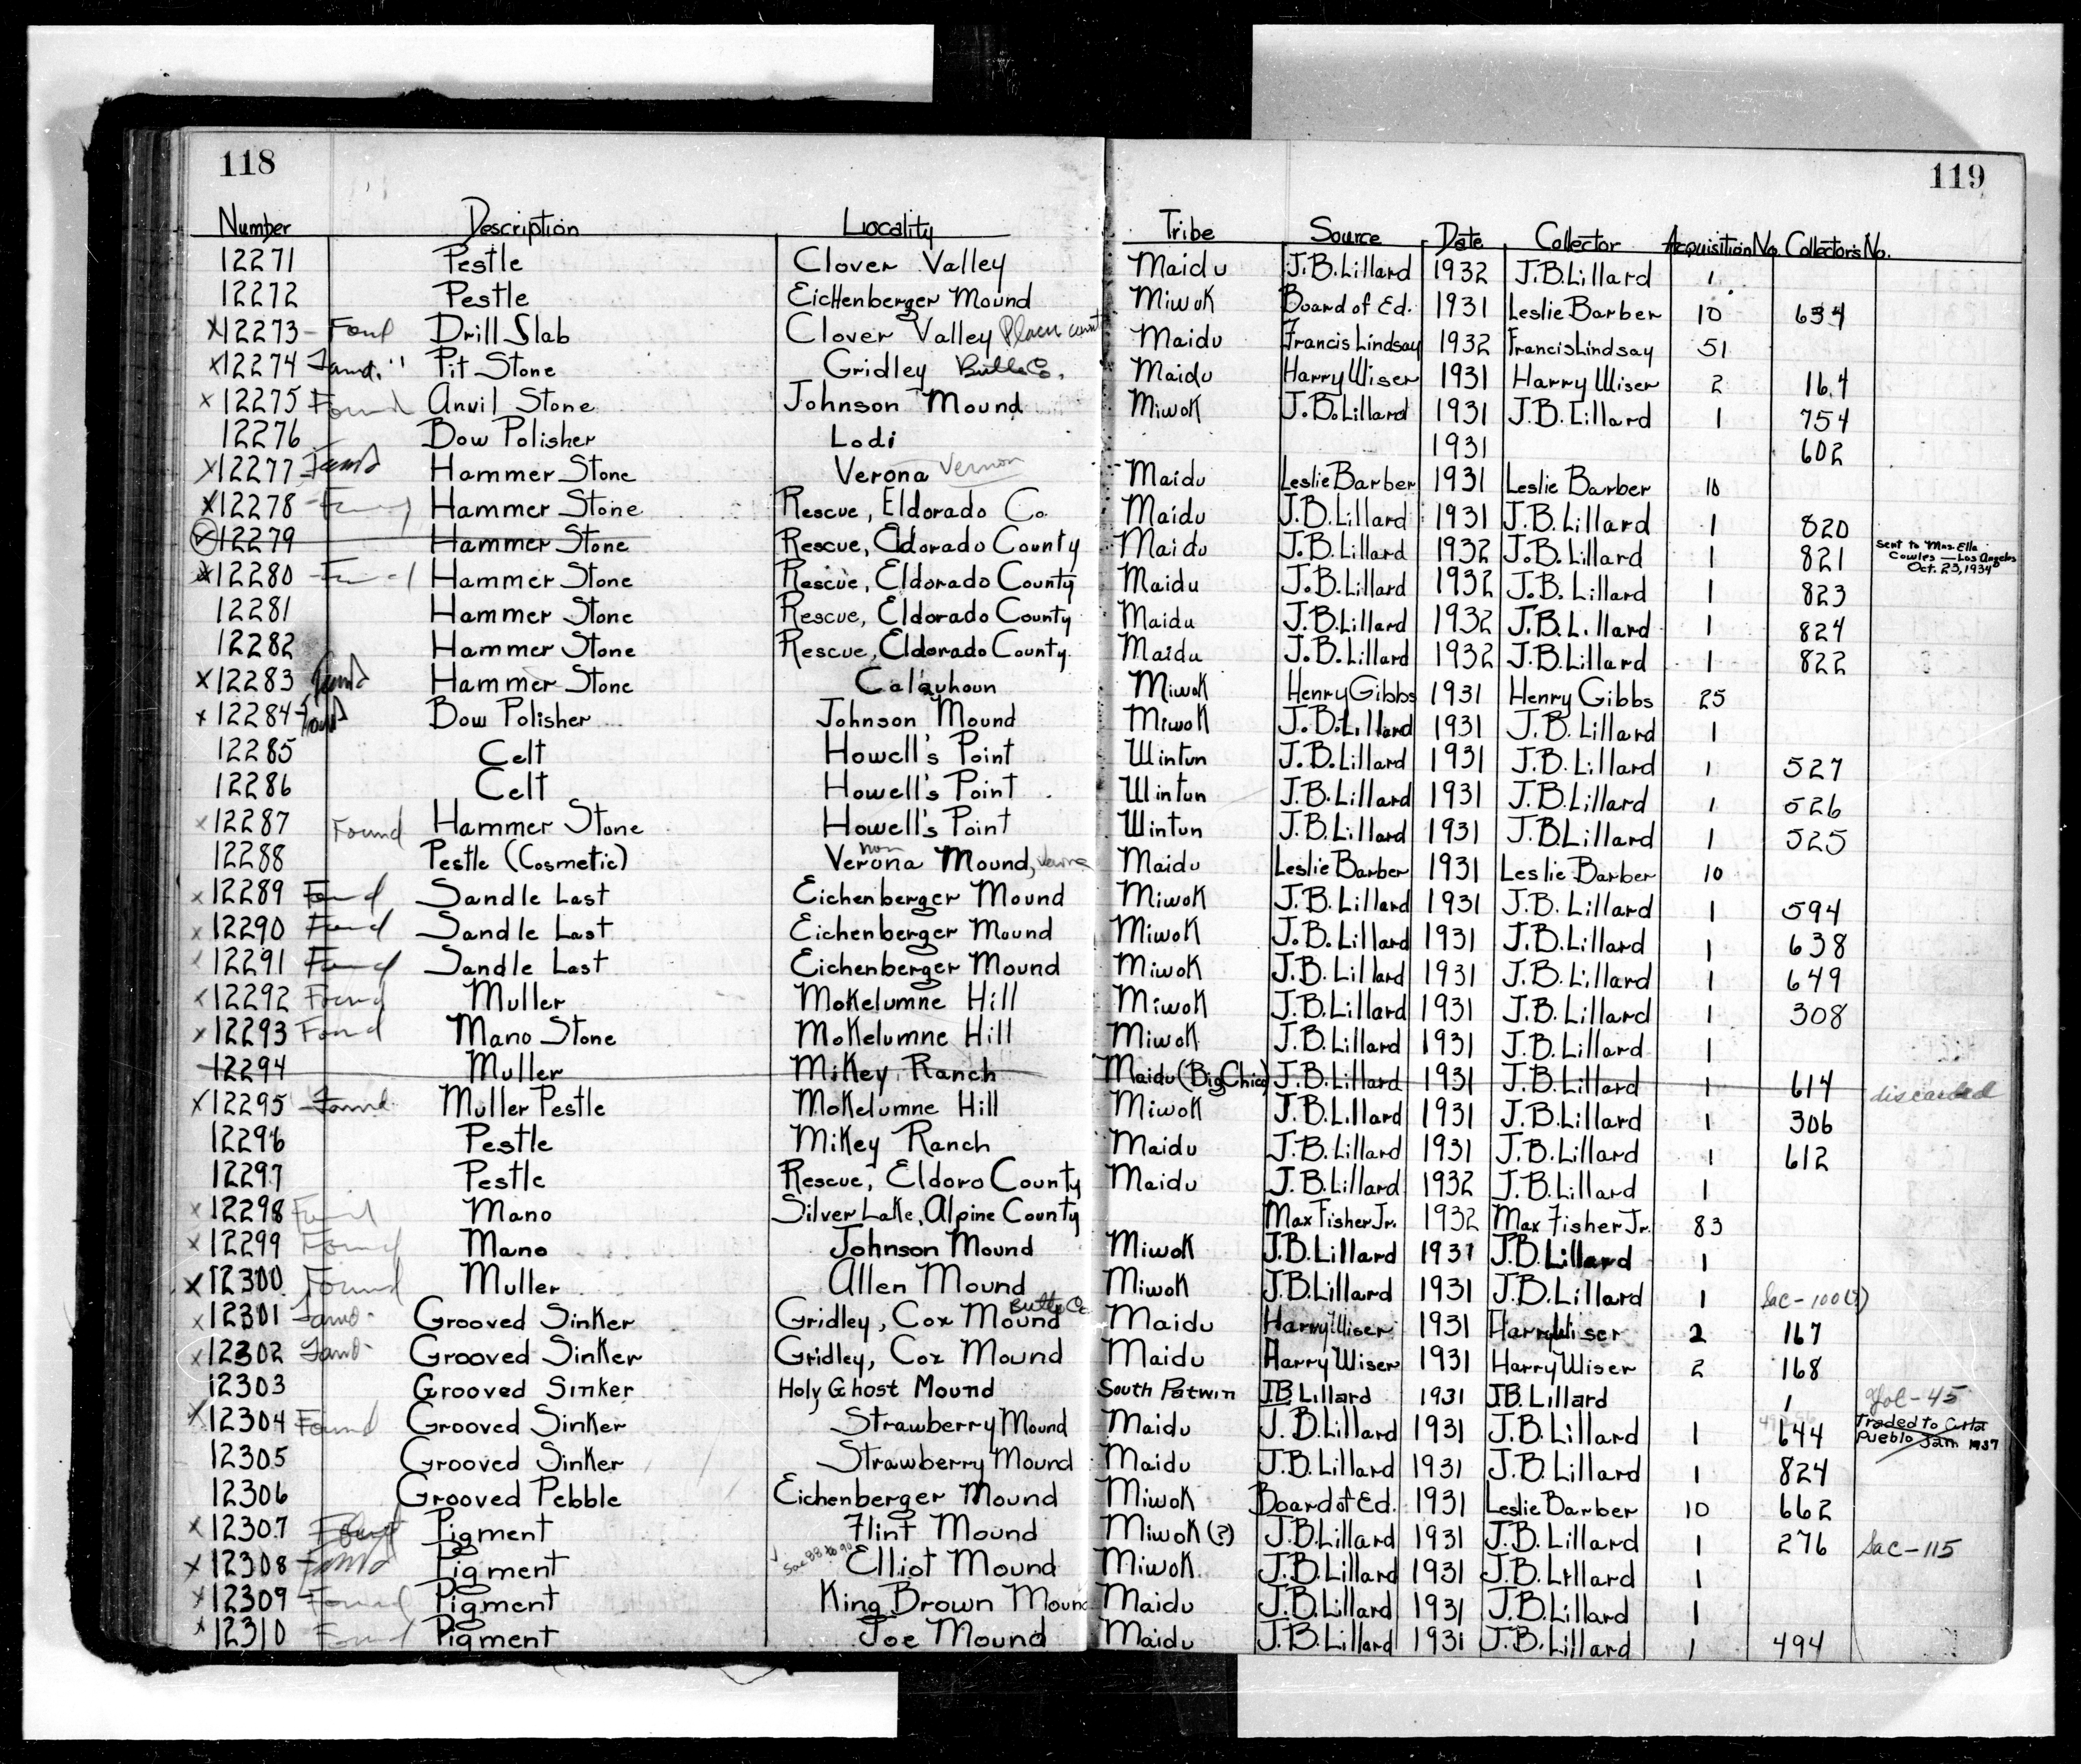 118
119
Number Description Locality Tribe Source Date Collector Acquisition No. Collector's No.
12271 Pestle Clover Valley Maidu J.B.Lillard 1932 J.B.Lillard 1
12272 Pestle Eichenberger Mound Miwok Board of Ed. 1931 Leslie Barber 10 634
X12273 - Found Drill Slab Clover Valley Maidu Francis Lindsay 1932 Francis Lindsay 51
X12274 Found. " Pit Stone Gridley Butte Co. Maidu Harry Wiser 1931 Harry Wiser 2 164
X 12275 Found Anvil Stone Johnson Mound Miwok J.B.Lillard 1931 J.B. Lillard 1 754
12276 Bow Polisher Lodi 1931 602
X12277 Found Hammer Stone Verona Vernon Maidu Leslie Barber 1931 Leslie Barber 10
X12278 - Found Hammer Stone Rescue, Eldorado Co. Maidu J.B.Lillard 1931 J.B.Lillard 1 820
X12279 Hammer Stone Rescue, Eldorado County Maidu J.B.Lillard 1932 J.B.Lillard 1 821 Sent to Mrs. Ella Cowles - Los Angeles Oct. 23, 1934
X12280 - Found Hammer Stone Rescue, Eldorado County Maidu J.B.Lillard 1932 J.B. Lillard 1 823
12281 Hammer Stone Rescue, Eldorado County Maidu J.B.Lillard 1932 J.B.Lillard 1 824
12282 Hammer Stone Rescue, Eldorado County. Maidu J.B.Lillard 1932 J.B.Lillard 1 822
X12283 Found Hammer Stone Miwok Henry Gibbs 1931 Henry Gibbs 25
X 12284 - Found Bow Polisher Johnson Mound Miwok J.B.Lillard 1931 J.B. Lillard 1
12285 Celt Howell's Point Wintun J.B.Lillard 1931 J.B. Lillard 1 527
12286 Celt Howell's Point Wintun J.B.Lillard 1931 J.B.Lillard 1 526
X12287 Found Hammer Stone Howell's Point Wintun J.B.Lillard 1931 J.B.Lillard 1 525
12288 Pestle (Cosmetic) Verona non Mound, Maidu Leslie Barber 1931 Leslie Barber 10
X12289 Found Sandle Last Eichenberger Mound Miwok J.B.Lillard 1931 J.B. Lillard 1 594
X 12290 Found Sandle Last Eichenberger Mound Miwok J.B.Lillard 1931 J.B.Lillard 1 638
X 12291 Found Sandle Last Eichenberger Mound Miwok J.B.Lillard 1931 J.B.Lillard 1 649
X12292 Found Muller Mokelumne Hill Miwok J.B.Lillard 1931 J.B. Lillard 1 308
X12293 Found Mano Stone Mokelumne Hill Miwok J.B.Lillard 1931 J.B. Lillard 1
12294 Muller Mikey Ranch Maidu (Big Chico) J.B.Lillard 1931 J.B.Lillard 1 614 discarded
X12295 - Found Muller Pestle Mokelumne Hill Miwok J.B.Lillard 1931 J.B.Lillard 1 306
12296 Pestle Mikey Ranch Maidu J.B.Lillard 1931 J.B.Lillard 1 612
12297 Pestle Rescue, Eldoro County Maidu J.B.Lillard 1932 J.B.Lillard 1
X12298 Found Mano Silver Lake, Alpine County Max Fisher Jr. 1932 Max Fisher Jr. 83
X 12299 Found Mano Johnson Mound Miwok J.B.Lillard 1931 J.B.Lillard 1
X 12300 Found Muller Allen Mound Miwok J.B.Lillard 1931 J.B.Lillard 1 Sac-100(?)
X 12301 Found Grooved Sinker Gridley, Cox Mound Butte Co Maidu Harry Wiser 1931 Harry Wiser 2 167
X 12302 Found Grooved Sinker Gridley, Cox Mound Maidu Harry Wiser 1931 Harry Wiser 2 168
12303 Grooved Sinker Holy Ghost Mound South Patwin J.B. Lillard 1931 J.B. Lillard 1 Yol-45
X12304 Found Grooved Sinker Strawberry Mound Maidu J.B.Lillard 1931 J.B.Lillard 1 644 Traded to Pueblo Jan 1937
12305 Grooved Sinker Strawberry Mound Maidu J.B.Lillard 1931 J.B.Lillard 1 824
12306 Grooved Pebble Eichenberger Mound Miwok Board of Ed. 1931 Leslie Barber 10 662
X 12307 Found Pigment Flint Mound Miwok (?) J.B.Lillard 1931 J.B. Lillard 1 276 Sac-115
X 12308 Found Pigment Elliot Mound Miwok J.B.Lillard 1931 J.B.Lillard 1
X 12309 - Found Pigment King Brown Mound Maidu J.B.Lillard 1931 J.B.Lillard 1
X 12310 Found Pigment Joe Mound Maidu J.B.Lillard 1931 J.B.Lillard 1 494